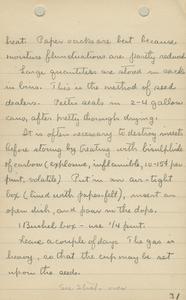 heat. Paper sacks are best because
moisture fluctuations are partly reduced
Large quantities are stored in sacks
in bins. This is the method of seed
dealers. Peltis seals in 2-4 gallon
cans, after pretty thorough drying.
It is often necessary to destroy insects
before storing by treating with bisulphide
of carbon (explosive, inflammable, 10-15¢ per
pint, volatile). Put in an air-tight
box (lined with paper-felt), insert an
open dish, and pour in the dope.
1 Bushel box - use 1/4 pint.
Leave a couple of days. The gas is
heavy, so that the cup may be set
upon the seeds.
over